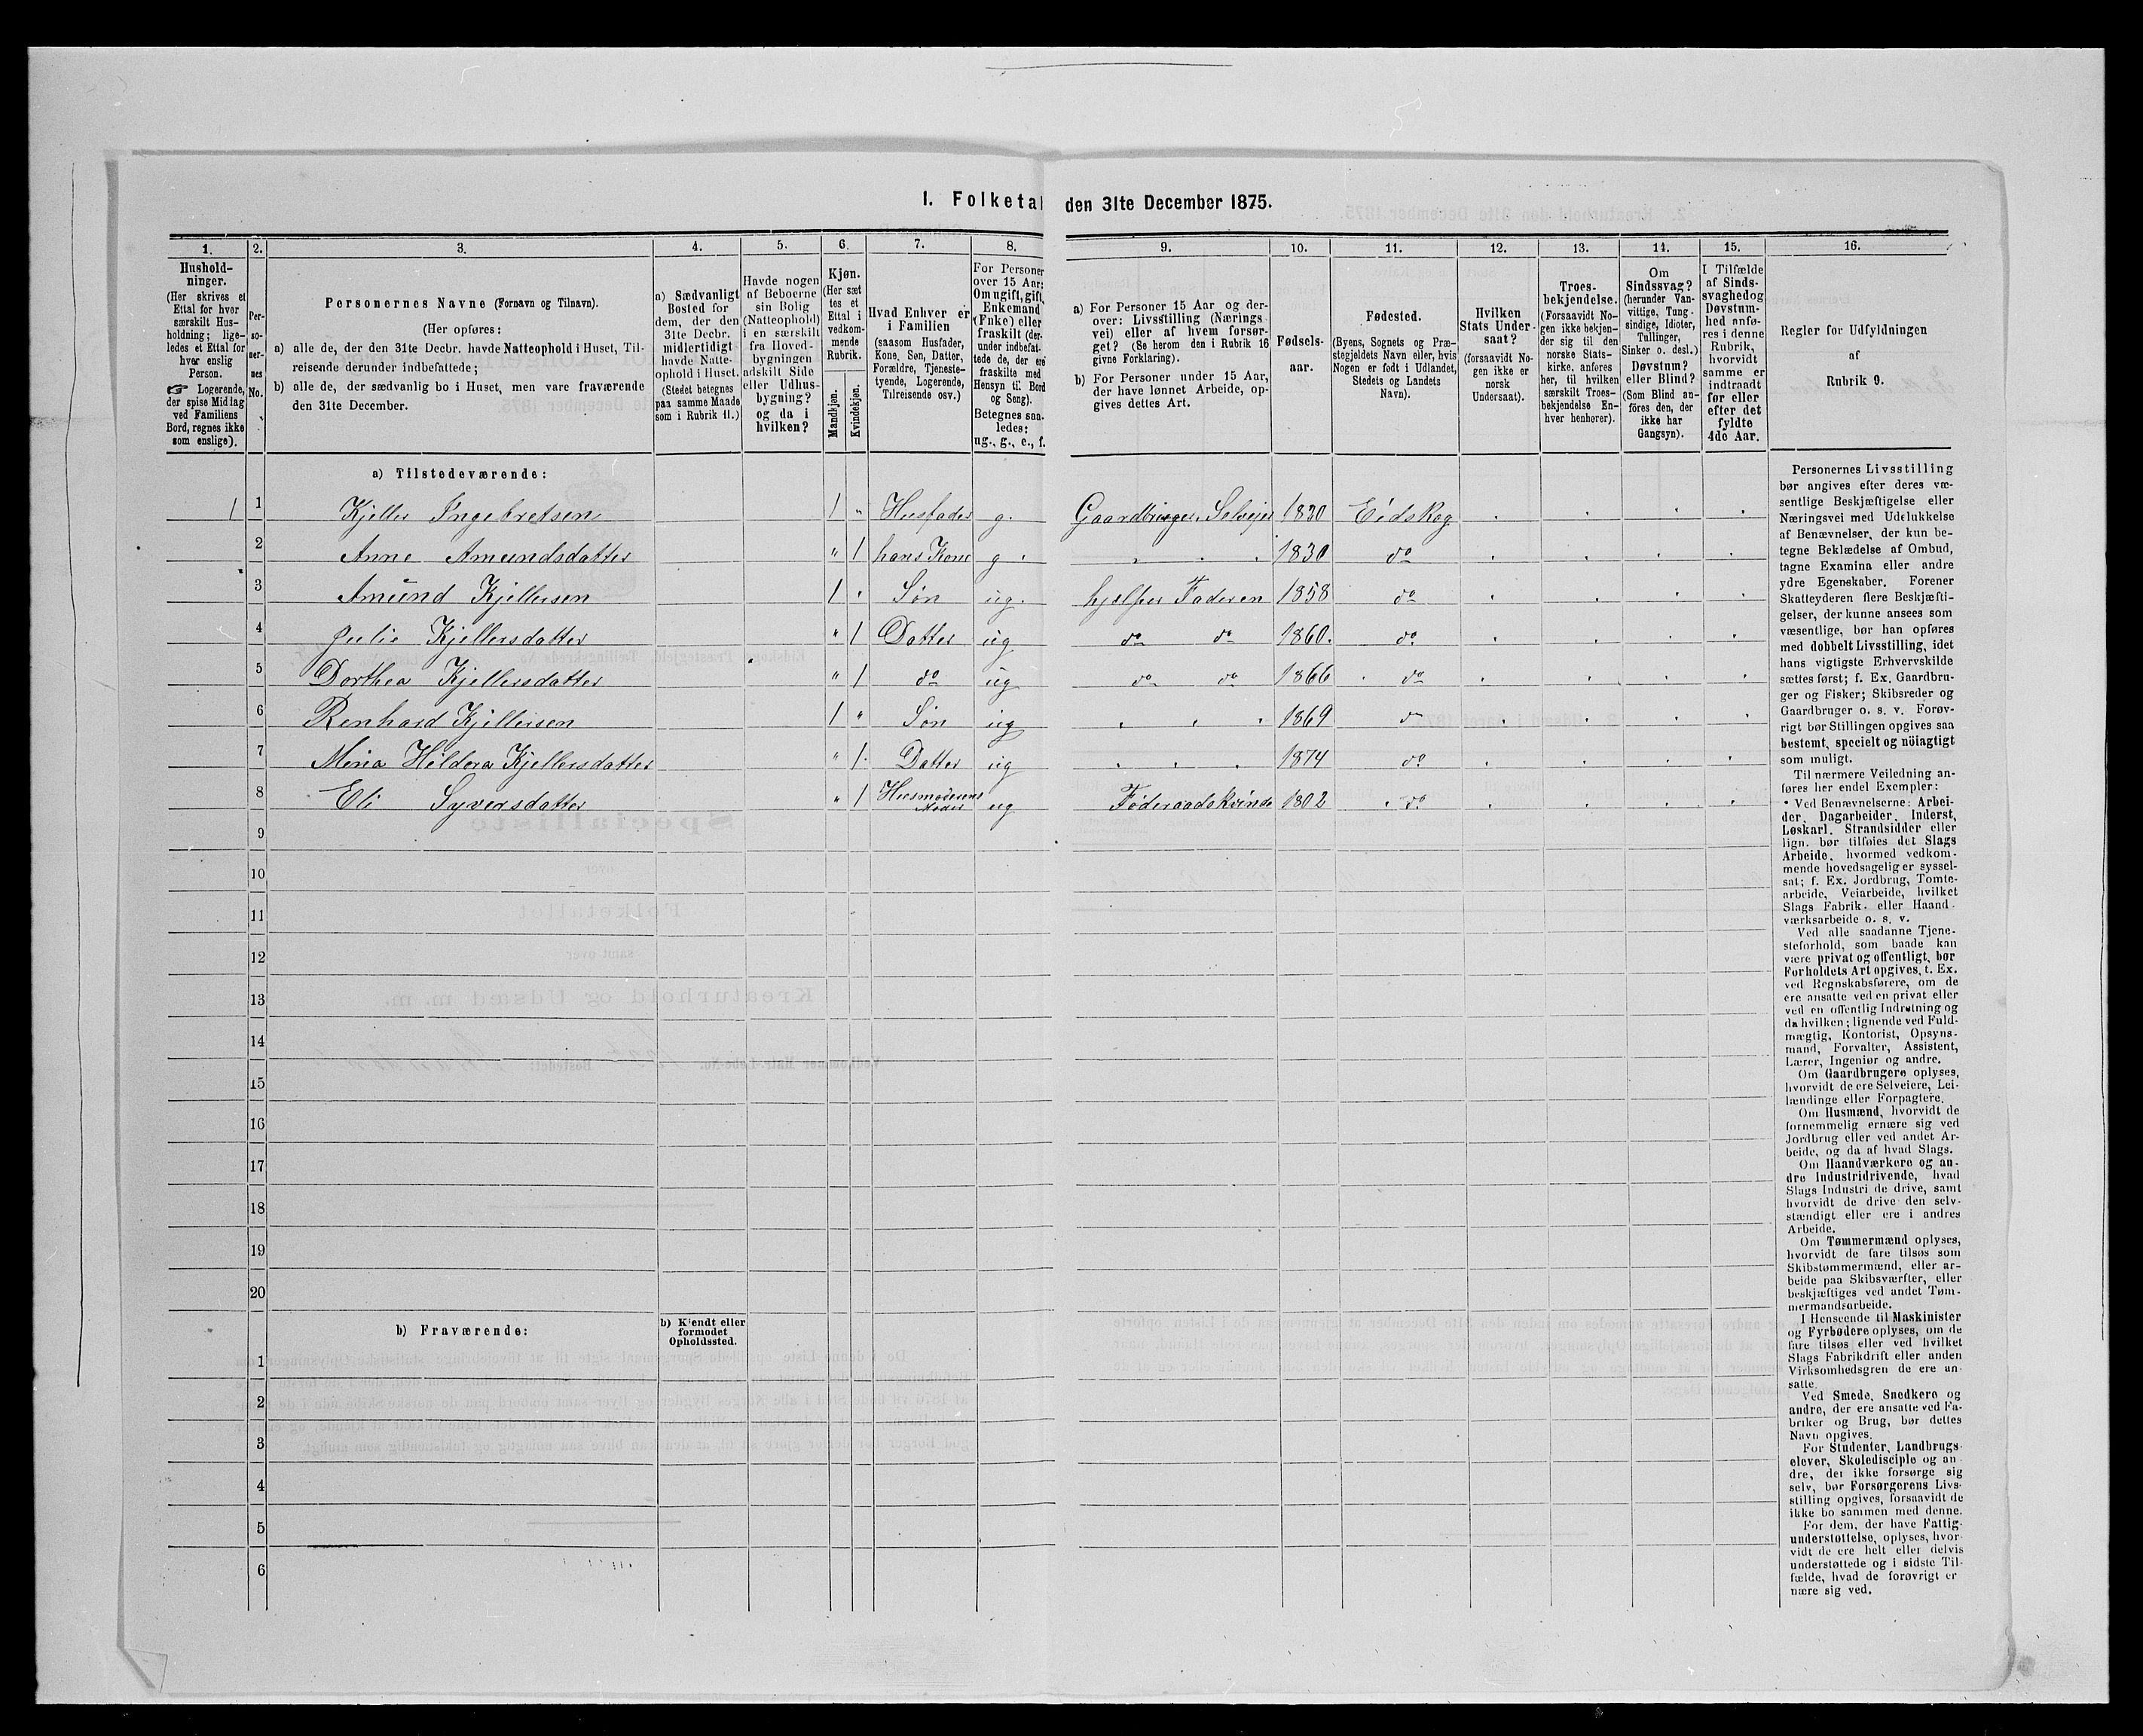 I. Folketal den 31te December 1875.
1. 2. 3. 4. 5. 6. 7. 8. 9. 10. 11. 12. 13. 14. 15. 16.
Hushold-
ninger.
(Her skrives et
Ettal for hver
særskilt Hus-
holdning; lige-
ledes et Ettal for
hver enslig
Person.
☞ Logerende,
der spise Middag
ved Familiens
Bord, regnes ikke
som enslige).
Per-
so-
ner-
nes
No.
Personernes Navne (Fornavn og Tilnavn).
(Her opføres:
a) alle de, der den 31te Decbr. havde Natteophold i Huset, Til-
reisende derunder indbefattede;
b) alle de, der sædvanlig bo i Huset, men vare fraværende
den 31te December.
a) Sædvanligt
Bosted for
dem, der den
31te Decbr.
midlertidigt
havde Natte-
ophold i Huset.
(Stedet betegnes
paa samme Maade
som i Rubrik 11.)
Havde nogen
af Beboerne
sin Bolig
(Natteophold)
i en særskilt
fra Hoved-
bygningen
adskilt Side
eller Udhus-
bygning?
og da i
hvilken?
Kjøn.
(Her sæt
tes et
Ettal i
vedkom-
mende
Rubrik.
Mandkjøn.
Kvindekjøn.
Hvad Enhver er
i Familien
(saasom Husfader,
Kone, Søn, Datter,
Forældre, Tjeneste-
tyende, Logerende,
Tilreisende osv.)
For Personer
over 15 Aar:
Om ugift, gift,
Enkemand
(Enke) eller
fraskilt (der-
under indbefat-
tede de, der ere
fraskilte med
Hensyn til Bord
og Seng).
Betegnes saa-
ledes:
ug., g., e., f.
a) For Personer 15 Aar og der-
over: Livsstilling (Nærings
vei) eller af hvem forsør-
get? (Se herom den i Rubrik 16
givne Forklaring).
b) For Personer under 15 Aar,
der have lønnet Arbeide, op-
gives dettes Art.
Fødsels-
aar.
Fødested.
(Byens, Sognets og Præ-
stegjeldets Navn eller, hvis
Nogen er født i Udlandet,
Stedets og Landets
Navn).
Hvilken
Stats Under-
saat?
(forsaavidt No-
gen ikke er
norsk
Undersaat).
Troes-
bekjendelse.
(Forsaavidt No-
gen ikke bekjen-
der sig til den
norske Stats-
kirke, anføres
her, til hvilken
særskilt Troes-
bekjendelse En-
hver henhører).
Om
Sindssvag?
(herunder Van-
vittige, Tung-
sindige, Idioter,
Tullinger,
Sinker o. desl.)
Døvstum?
eller Blind?
(Som Blind an-
føres den, der
ikke har
Gangsyn).
I Tilfælde
af Sinds-
svaghed og
Døvstum-
hed anfø-
res i denne
Rubrik,
hvorvidt
samme er
indtraadt
før eller
efter det
fyldte
4de Aar.
Regler for Udfyldningen
af
Rubrik 9.
a) Tilstedeværende:
1 1 Kjeller Ingebretsen 1 " Husfader g. Gaardbruger, Selveier 1830 Eidskog
2 Anne Amundsdatter " 1 hans Kone g 1830 do
3 Amund Kjellersen 1 " Søn ug. hjelper Faderen 1858 do
4 Julie Kjellersdatter " 1 Datter ug do do 1860. do
5 Dorthea Kjellersdatter " 1 do ug do do 1866 do
6 Renhard Kjellersen 1 " Søn ug 1869 do
7 Mina Heldera Kjellersdatter " 1 Datter ug 1874 do
8 Eli Syversdatter " 1 Husmoderens Moder ug Føderaadskvinde 1802 do
9
10
11
12
13
14
15
16
17
18
19
20
b) Fraværende:
b) Kjendt eller
formodet
Opholdssted.
1
2
3
4
5
6
Personernes Livsstilling
bør angives efter deres væ-
sentlige Beskjæftigelse eller
Næringsvei med Udelukkelse
af Benævnelser, der kun be-
tegne Beklædelse af Ombud,
tagne Examina eller andre
ydre Egenskaber. Forener
Skatteyderen flere Beskjæfti-
gelser, der kunne ansees som
væsentlige, bør han opføres
med dobbelt Livsstilling, idet
hans vigtigste Erhvervskilde
sættes først; f. Ex. Gaardbru-
ger og Fisker; Skibsreder og
Gaardbruger o. s. v. Forøv-
rigt bør Stillingen opgives saa
bestemt, specielt og nöiagtigt
som muligt.
Til nærmere Veiledning an-
føres her endel Exempler:
Ved Benævnelserne: Arbei-
der, Dagarbeider, Inderst,
Løskarl, Strandsidder eller
lign. bør tilføies det Slags
Arbeide, hvormed vedkom-
mende hovedsagelig er syssel-
sat; f. Ex. Jordbrug, Tomte-
arbeide, Veiarbeide, hvilket
Slags Fabrik- eller Haand-
værksarbeide o. s. v.
Ved alle saadanne Tjene-
steforhold, som baade kan
være privat og offentligt, bør
Forholdets Art opgives, f. Ex.
ved Regnskabsførere, om de
ere ansatte ved en privat eller
ved en offentlig Indretning og
da hvilken; lignende ved Fuld-
mægtig, Kontorist, Opsyns-
mand, Forvalter, Assistent,
Lærer, Ingeniør og andre.
Om Gaardbrugere oplyses,
hvorvidt de ere Selveiere, Lei-
lændinge eller Forpagtere.
Om Husmænd, hvorvidt de
fornemmelig ernære sig ved
Jordbrug eller ved andet Ar-
beide, og da af hvad Slags.
Om Haandværkere og an-
dre Industridrivende, hvad
Slags Industri de drive, samt
hvorvidt de drive den selv-
stændigt eller ere i andres
Arbeide.
Om Tømmermænd oplyses,
hvorvidt de fare tilsøs som
Skibstømmermænd, eller ar-
beide paa Skibsværfter, eller
beskjæftiges ved andet Tøm-
mermandsarbeide.
I Henseende til Maskinister
og Fyrbødere oplyses, om de
fare tilsøs eller ved hvilket
Slags Fabrikdrift eller anden
Virksomhedsgren de ere an-
satte.
Ved Smede, Snedkere og
andre, der ere ansatte ved Fa-
briker og Brug, bør dettes
Navn opgives.
For Studenter, Landbrugs-
elever, Skoledisciple og an-
dre, der ikke forsørge sig
selv, bør Forsørgerens Livs-
stilling opgives, forsaavidt de
ikke bo sammen med denne.
For dem, der have Fattig-
understøttelse, oplyses, hvor-
vidt de ere helt eller delvis
understøttede og i sidste Til-
fælde, hvad de forøvrigt er-
nære sig ved.